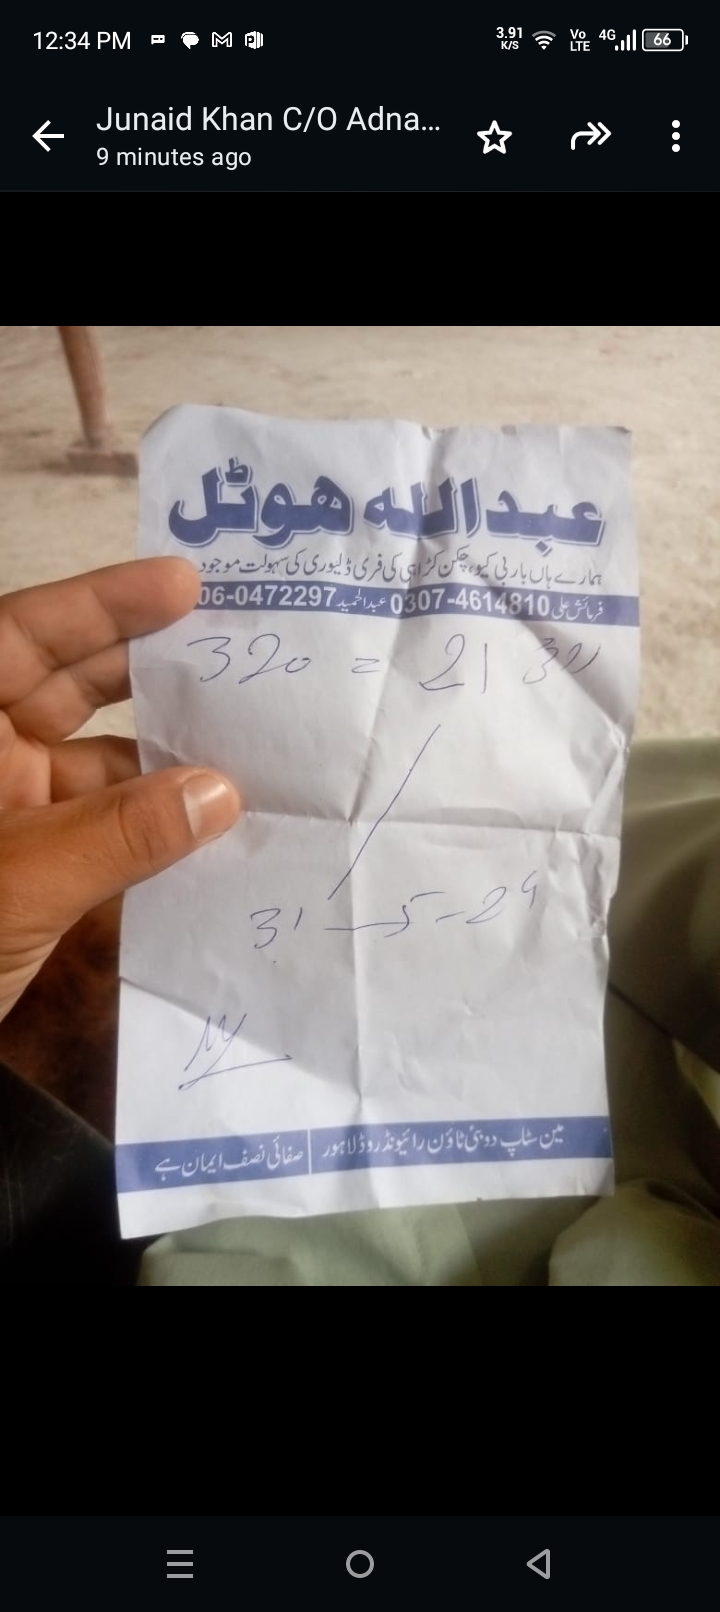 12:34 PM 3.91 K/S Vo LTE 4G 66
Junaid Khan C/O Adna...
9 minutes ago
عبداللہ ہوٹل
ہمارے ہاں باربی کیو، چکن کڑاہی کی فری ڈلیوری کی سہولت موجود
فرمائش علی 0307-4614810 عبدالحمید 06-0472297
320 = 21
31-5-24
مین سٹاپ دوبئی ٹاؤن رائیونڈ روڈ لاہور | صفائی نصف ایمان ہے